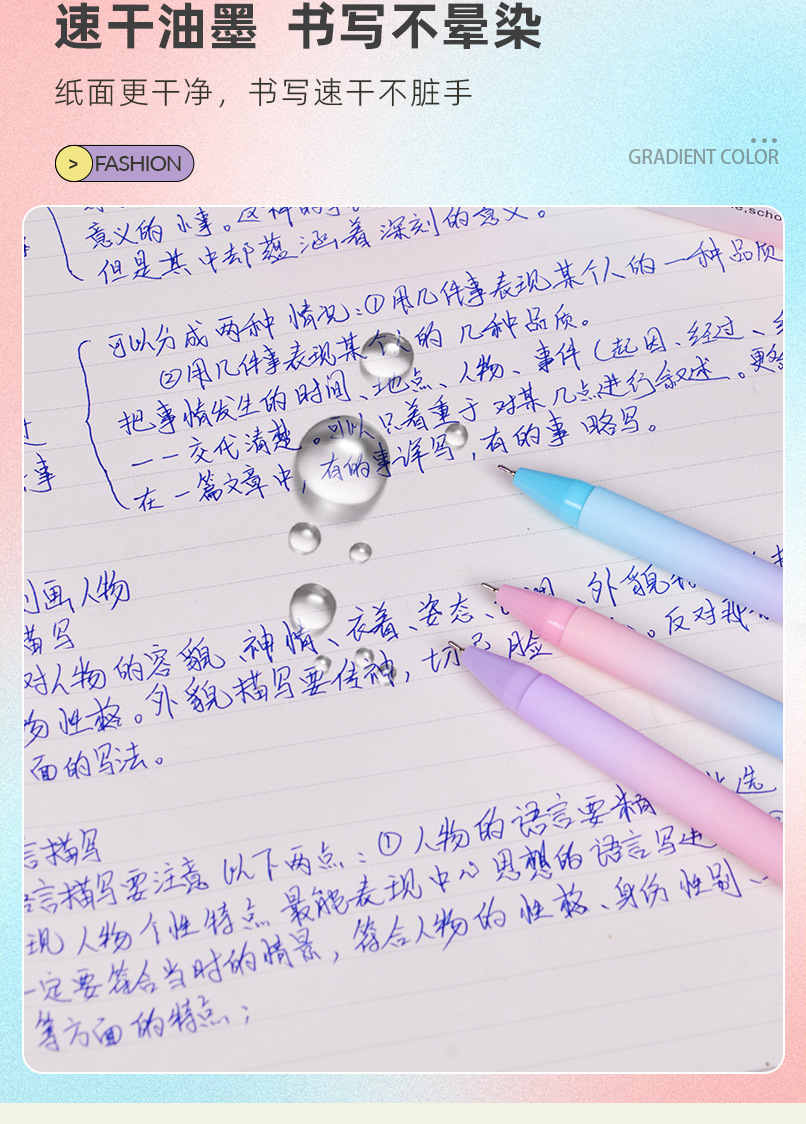 速干油墨 书写不晕染
纸面更干净，书写速干不脏手
> FASHION
GRADIENT COLOR
意义的小事。这种的
但是其中却蕴涵着深刻的含义。
可以分成两种情况：①用几件事表现某个人的一种品质
②用几件事表现某个人的几种品质。
把事情发生的时间、地点、人物、事件（起因、经过、
一一交代清楚。可以只着重于对某几点进行叙述。更
在一篇文章中，有的事详写，有的事略写。
事
刻画人物
描写
对人物的容貌、神情、衣着、姿态、外貌
物性格。外貌描写要传神，切忌脸。反对
面的写法。
言描写
语言描写要注意以下两点：①人物的语言要精选
现人物个性特点最能表现中心思想的语言写进
一定要符合当时的情景，符合人物的性格、身份性别、
等方面的特点；